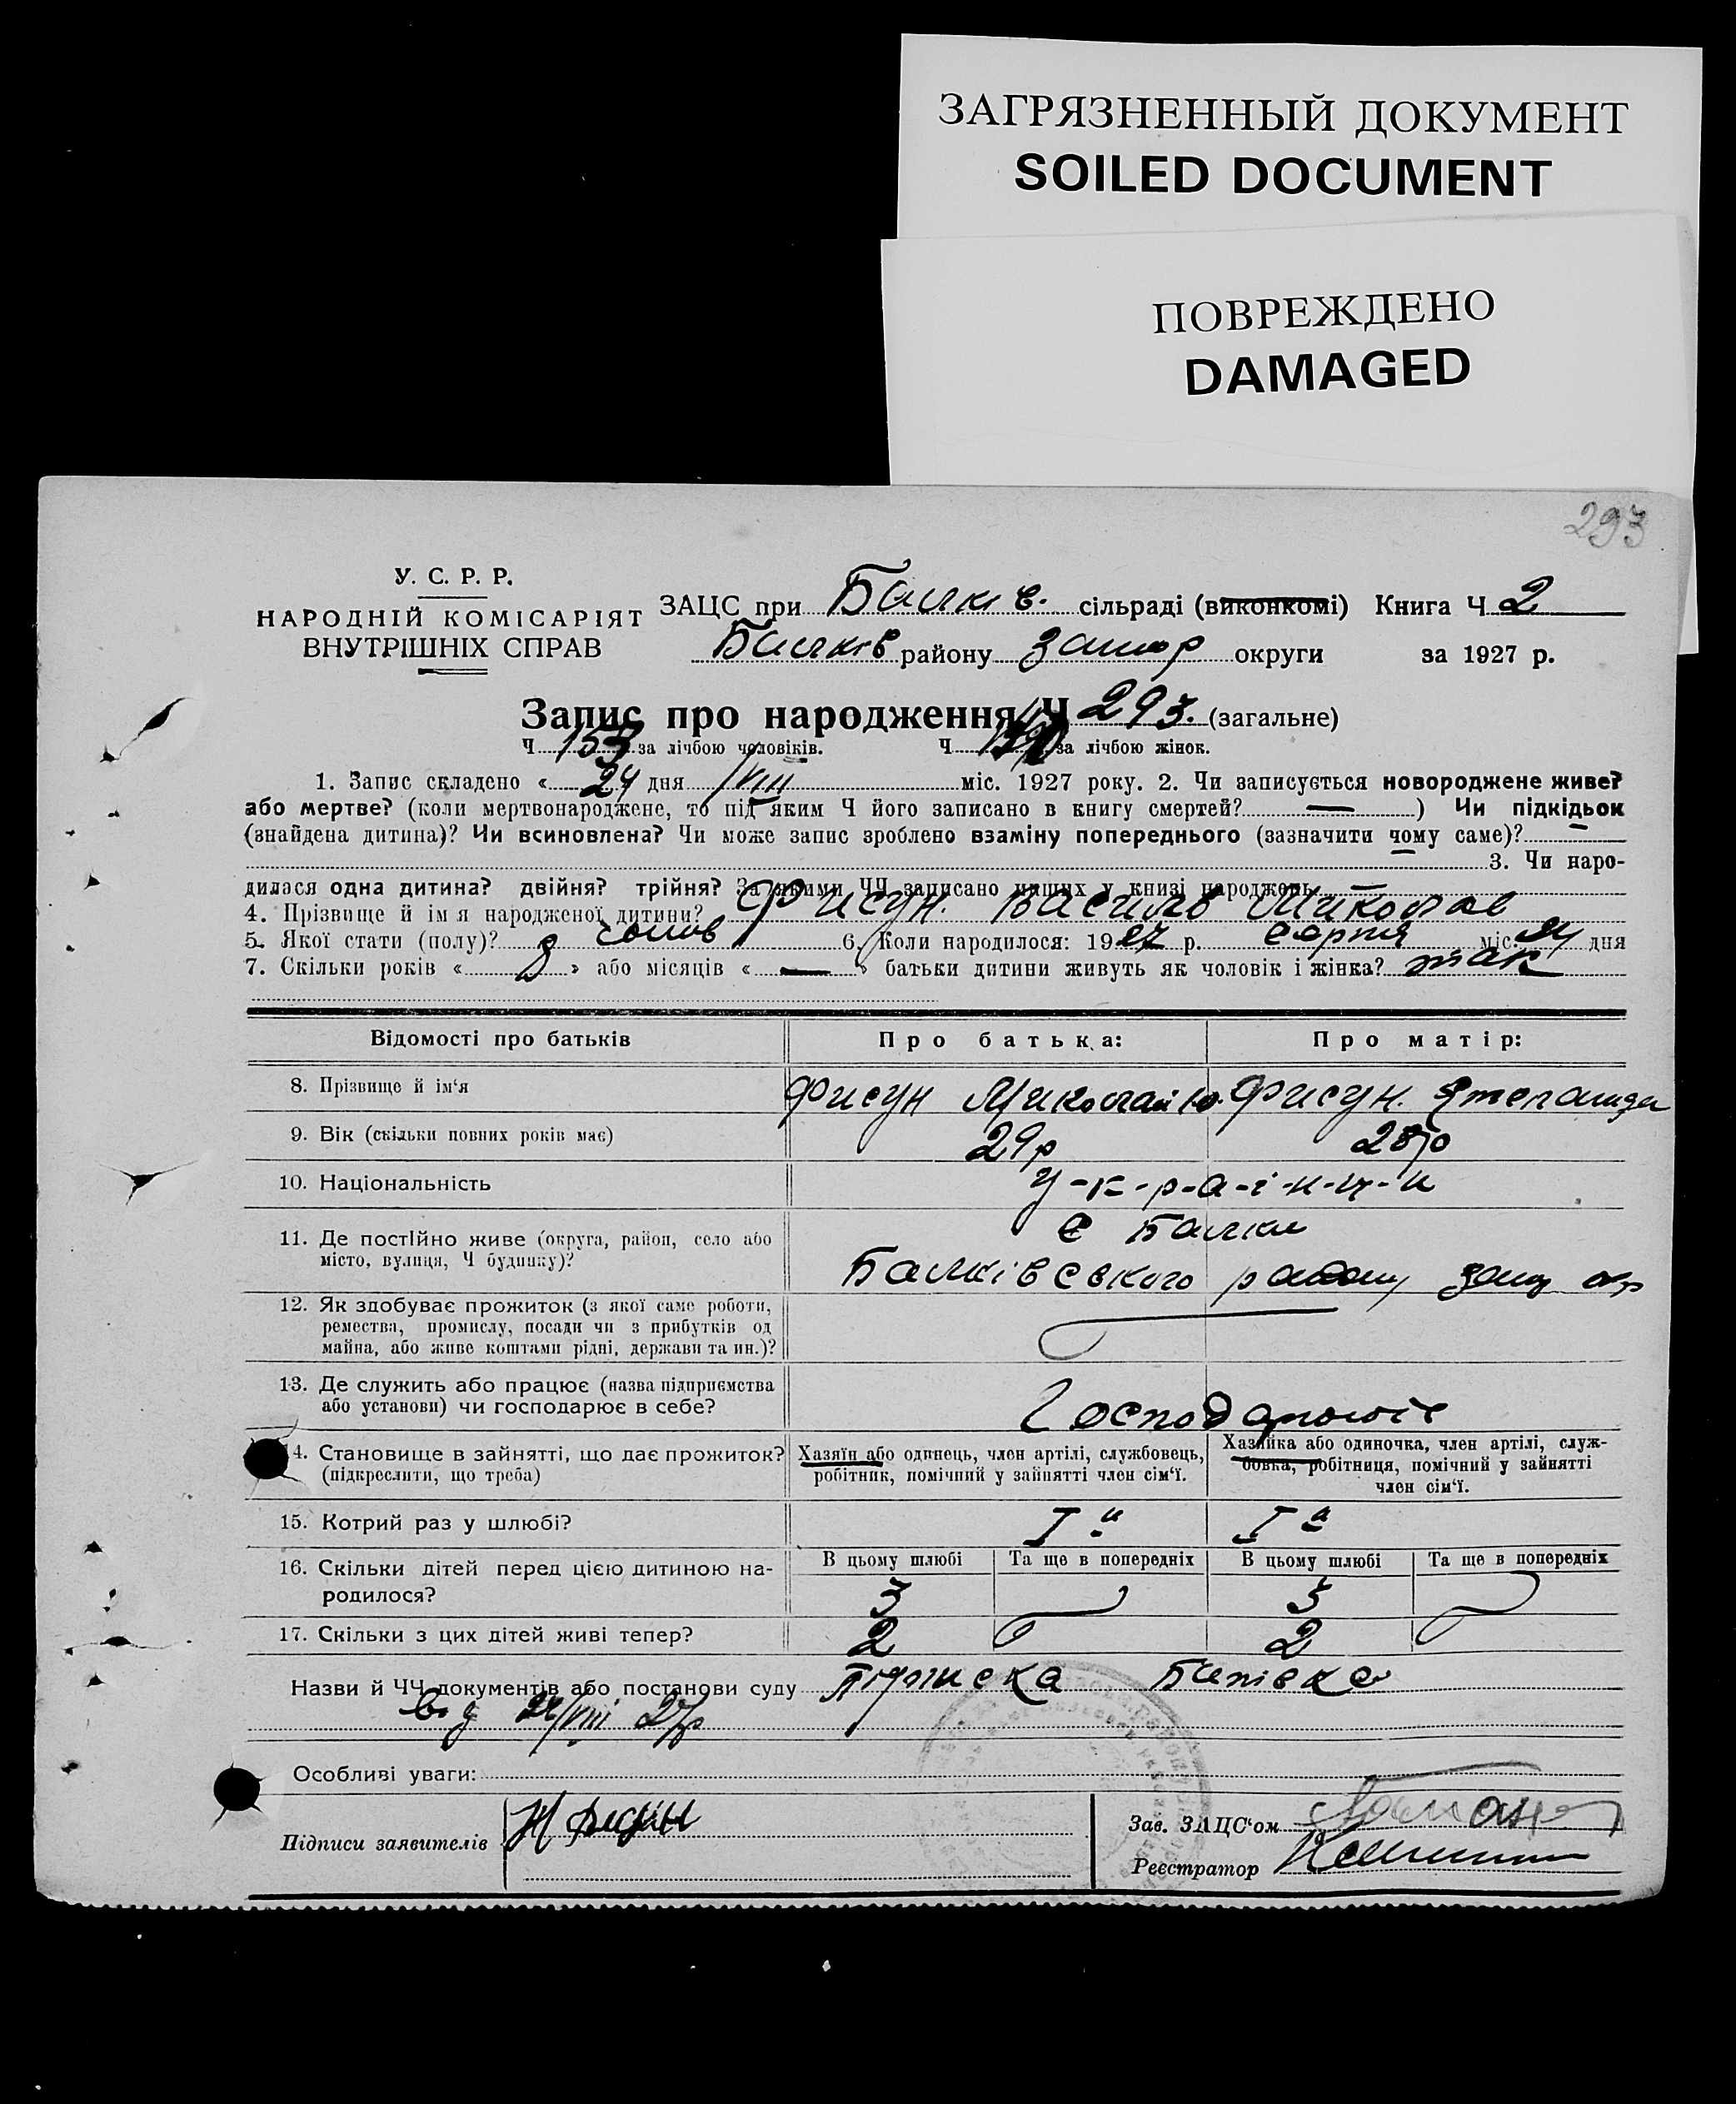 ЗАГРЯЗНЕННЫЙ ДОКУМЕНТ
SOILED DOCUMENT
ПОВРЕЖДЕНО
DAMAGED
293
У. С. Р. Р.
НАРОДНІЙ КОМІСАРІЯТ
ВНУТРІШНІХ СПРАВ
ЗАЦС при Балків. сільраді (виконкомі) Книга Ч 2
Балків району Запор округи за 1927 р.
Запис про народження Ч 293. (загальне)
Ч 153 за лічбою чоловіків. Ч за лічбою жінок.
1. Запис складено « 24 дня VIII міс. 1927 року. 2. Чи записується новороджене живе?
або мертве? (коли мертвонароджене, то під яким Ч його записано в книгу смертей? — ) Чи підкідьок
(знайдена дитина)? Чи всиновлена? Чи може запис зроблено взаміну попереднього (зазначити чому саме)? —
— 3. Чи наро-
дилася одна дитина? двійня? трійня? За якими ЧЧ записано инших у книзі народжень —
4. Прізвище й імя народженої дитини? Фисун. Василь Миколає
5. Якої стати (полу)? 6. Коли народилося: 1927 р. серпня міс. дня
7. Скільки років « 8 » або місяців « — » батьки дитини живуть як чоловік і жінка? так
Відомості про батьків Про батька: Про матір:
8. Прізвище й ім'я Фисун Миколай Ю. Фисун. Степанида
9. Вік (скільки повних років має) 29р 28р
10. Національність У-к-р-а-і-н-ц-и
11. Де постійно живе (округа, район, село або
місто, вулиця, Ч будинку)?
с Балки
Балківсвкого району Зап окр
12. Як здобуває прожиток (з якої саме роботи,
ремества, промислу, посади чи з прибутків од
майна, або живе коштами рідні, держави та ин.)?
13. Де служить або працює (назва підприємства
або установи) чи господарює в себе?
Господарюють
14. Становище в зайнятті, що дає прожиток?
(підкреслити, що треба)
Хазяїн або одинець, член артілі, службовець,
робітник, помічний у зайнятті член сім'ї.
Хазяйка або одиночка, член артілі, служ-
бовка, робітниця, помічний у зайнятті
член сім'ї.
15. Котрий раз у шлюбі? I й I а
16. Скільки дітей перед цією дитиною на-
родилося?
В цьому шлюбі Та ще в попередніх В цьому шлюбі Та ще в попередніх
3 3
17. Скільки з цих дітей живі тепер? 2 2
Назви й ЧЧ документів або постанови суду Підписка Батівка
від 24/VIII 27р
Особливі уваги:
Підписи заявителів Н Фисун
Зав. ЗАЦС'ом
Реєстратор